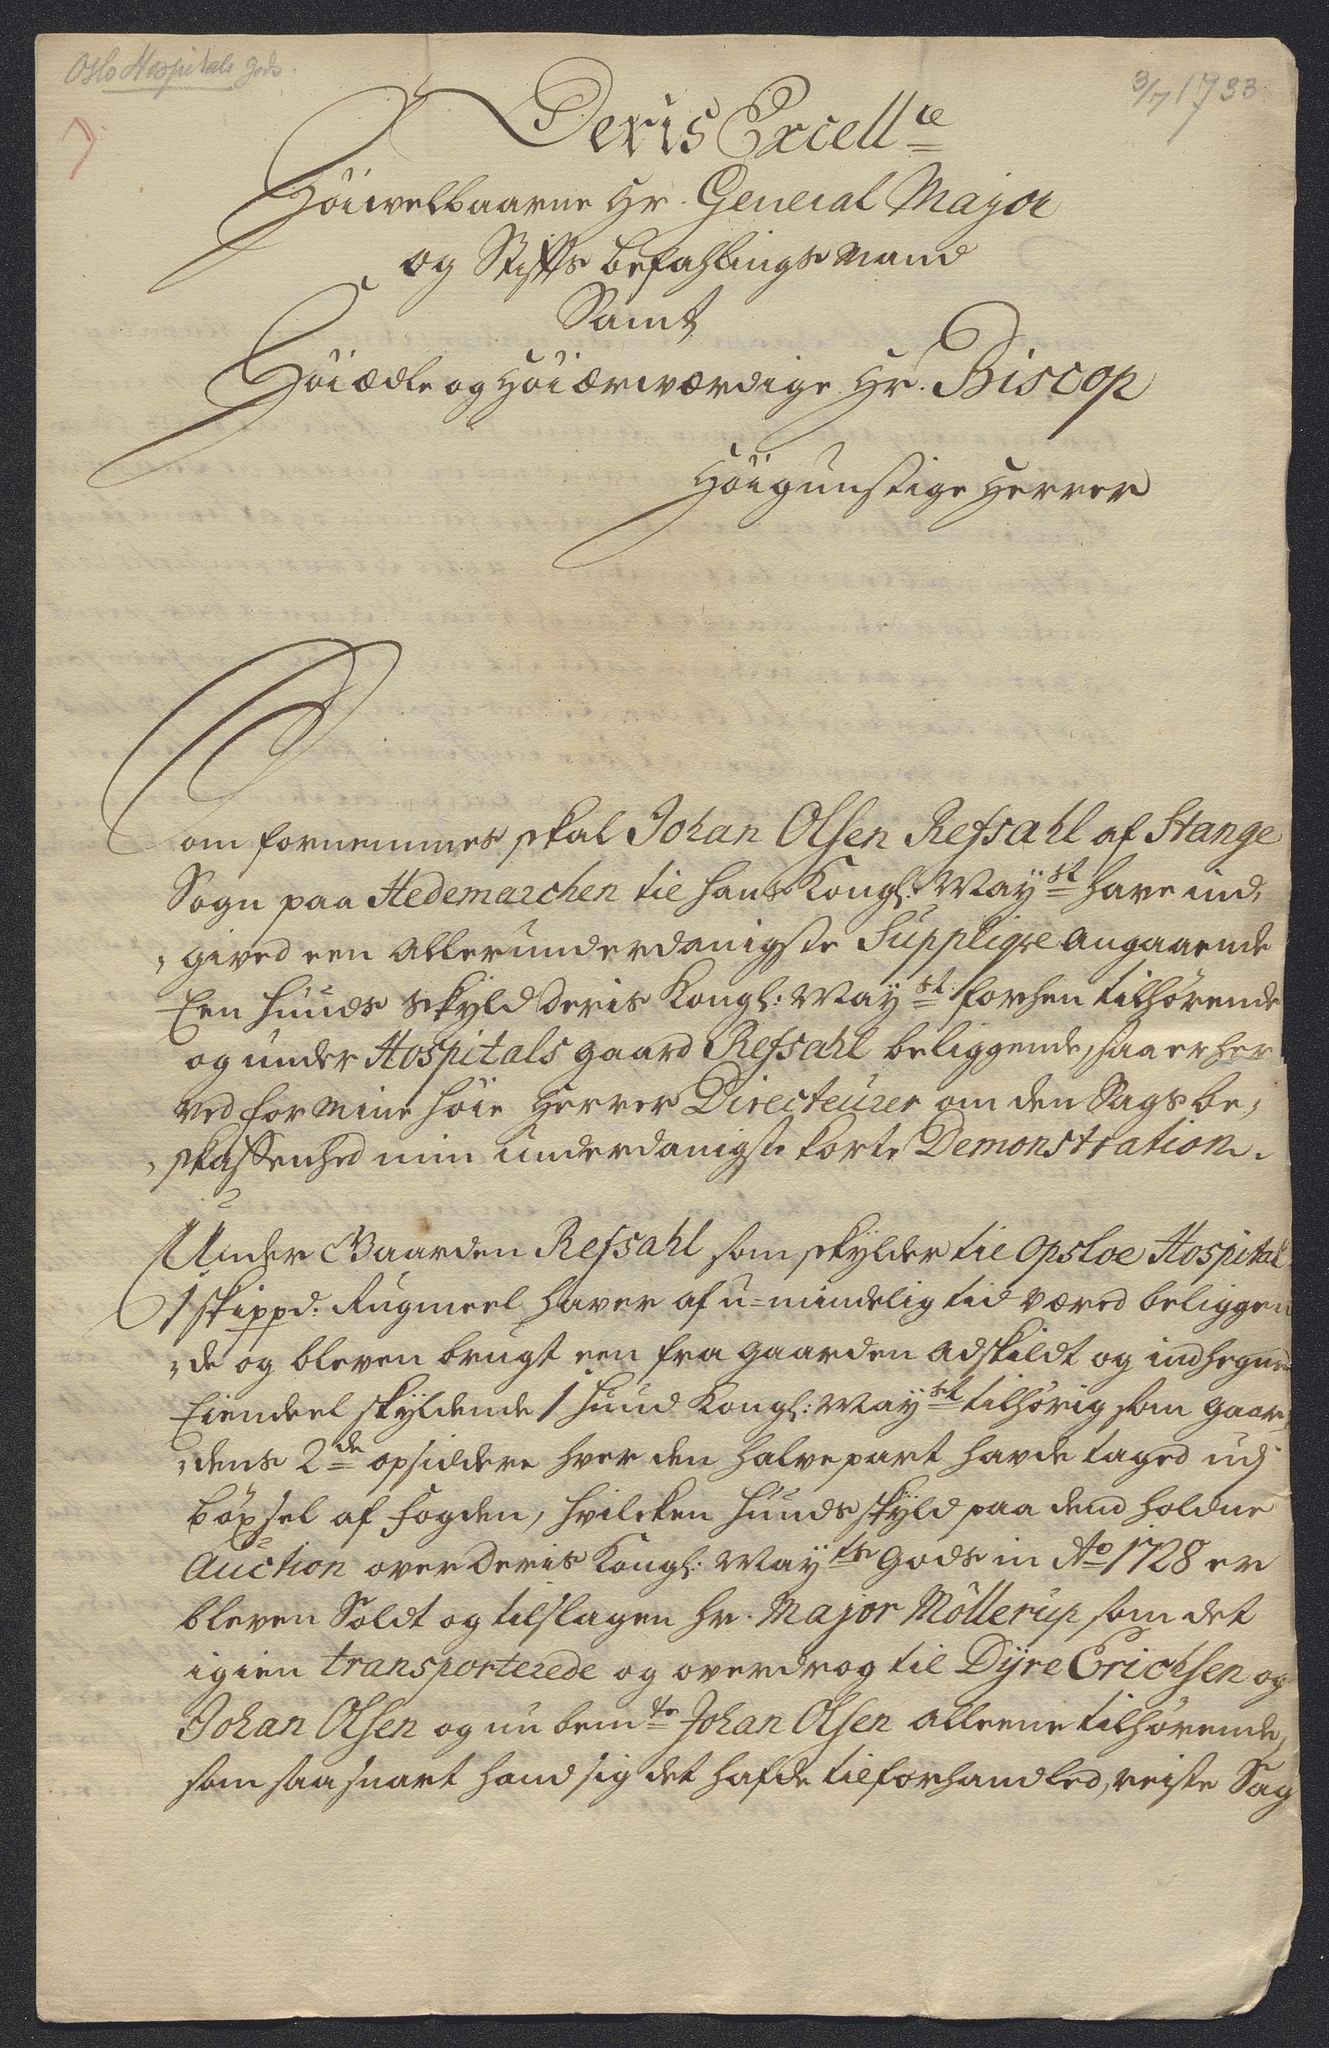 Oslo Hospitals gods.
3/7 1733.
Deris Excell:ce
Höiwelbaarne Hr. General Major
og Stifts befahlings Mand
Samt
Höiædle og Höiærværdige Hr. Biscop
Höigunstige Herrer
Som fornemmes skal Johan Olsen Refsahl af Stange
Sogn paa Hedemarchen til hans Kongl: May:st have ind,
,gived een allerunderdanigste Supplique angaaende
Een huuds skyld Deris Kongl: May:st forhen tilhørende
og under Hospitals gaard Refsahl beliggende, saa er her
ved for mine høie Herrer Directeurer om den Sags be,
,skaffenhed min underdanigste korte Demonstration.
Under Gaarden Refsahl som skylder til Opsloe Hospital
1 skippd: Rugmeel haver af u=mindelig tid været beliggen
,de og bleven brugt een fra gaarden adskildt og indhegned
Eiendeel skyldende 1 huud Kongl: May:st tilhörig som gaar,
,dens 2de opsiddere hver den halve part havde taged udj
böxsel af fogden, hvilcken huuds skyld paa dend holdne
Auction over Deris Kongl: May:ts Gods in Ao 1728 er
bleven Soldt og tilslagen hr. Major Möllerup som det
igien transporterede og overdrog til Dyre Erichsen og
Johan Olsen og nu bem:te Johan Olsen alleene tilhørende,
som saa snart hand sig det hafde tilforhandled, reiste Sag